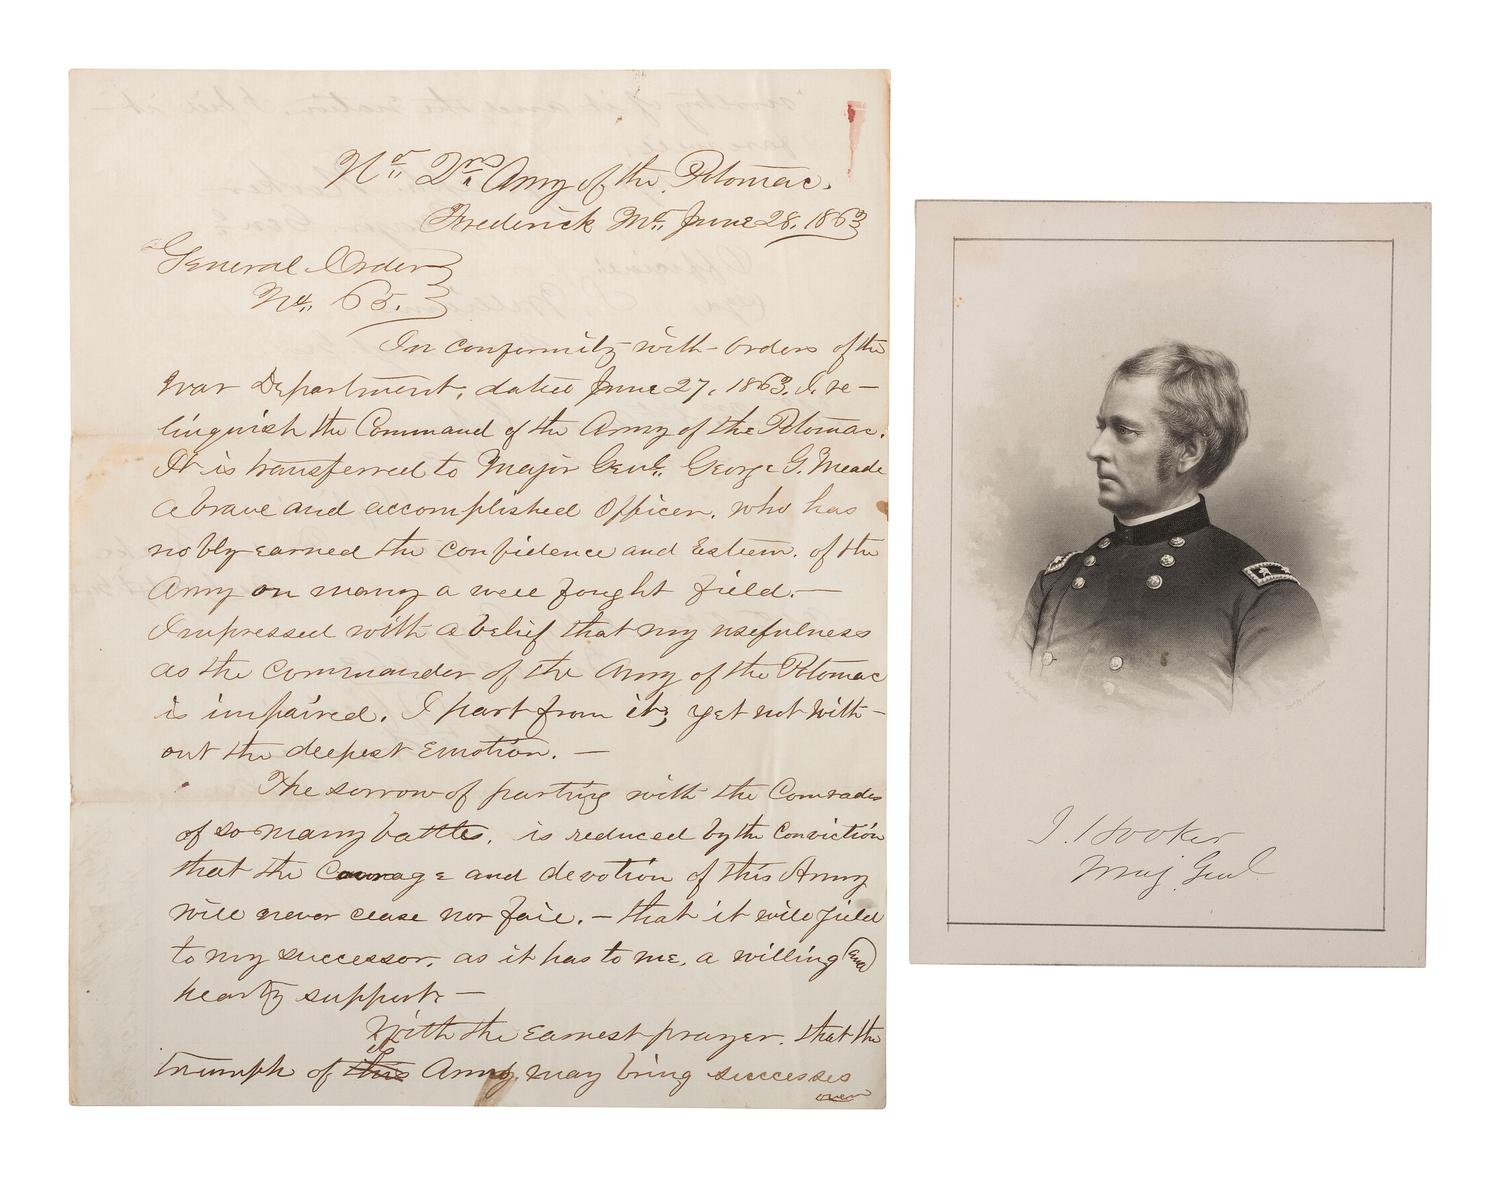 Hd. Qrs Army of the Potomac.
Frederick Md. June 28. 1863
General Order
No. 65.
In conformity with orders of the
War Department, dated June 27, 1863, I re-
linquish the Command of the Army of the Potomac.
It is transferred to Major Genl. George G. Meade
a brave and accomplished Officer, who has
nobly earned the confidence and Esteem, of the
Army on many a well fought field. —
Impressed with a belief that my usefulness
as the Commander of the Army of the Potomac
is impaired, I part from it; yet not with-
out the deepest Emotion. —
The sorrow of parting with the Comrades
of so many battles, is reduced by the Conviction
that the Courage and devotion of this Army
will never cease nor fail. – that it will yield
to my successor, as it has to me, a willing and
hearty support. —
With the Earnest prayer, that the
triumph of this its Army, may bring successes
over
J. Hooker
Maj. Genl.